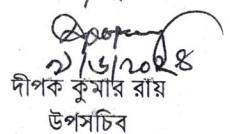 ২/৬/২০২৪
দীপক কুমার রায়
উপসচিব